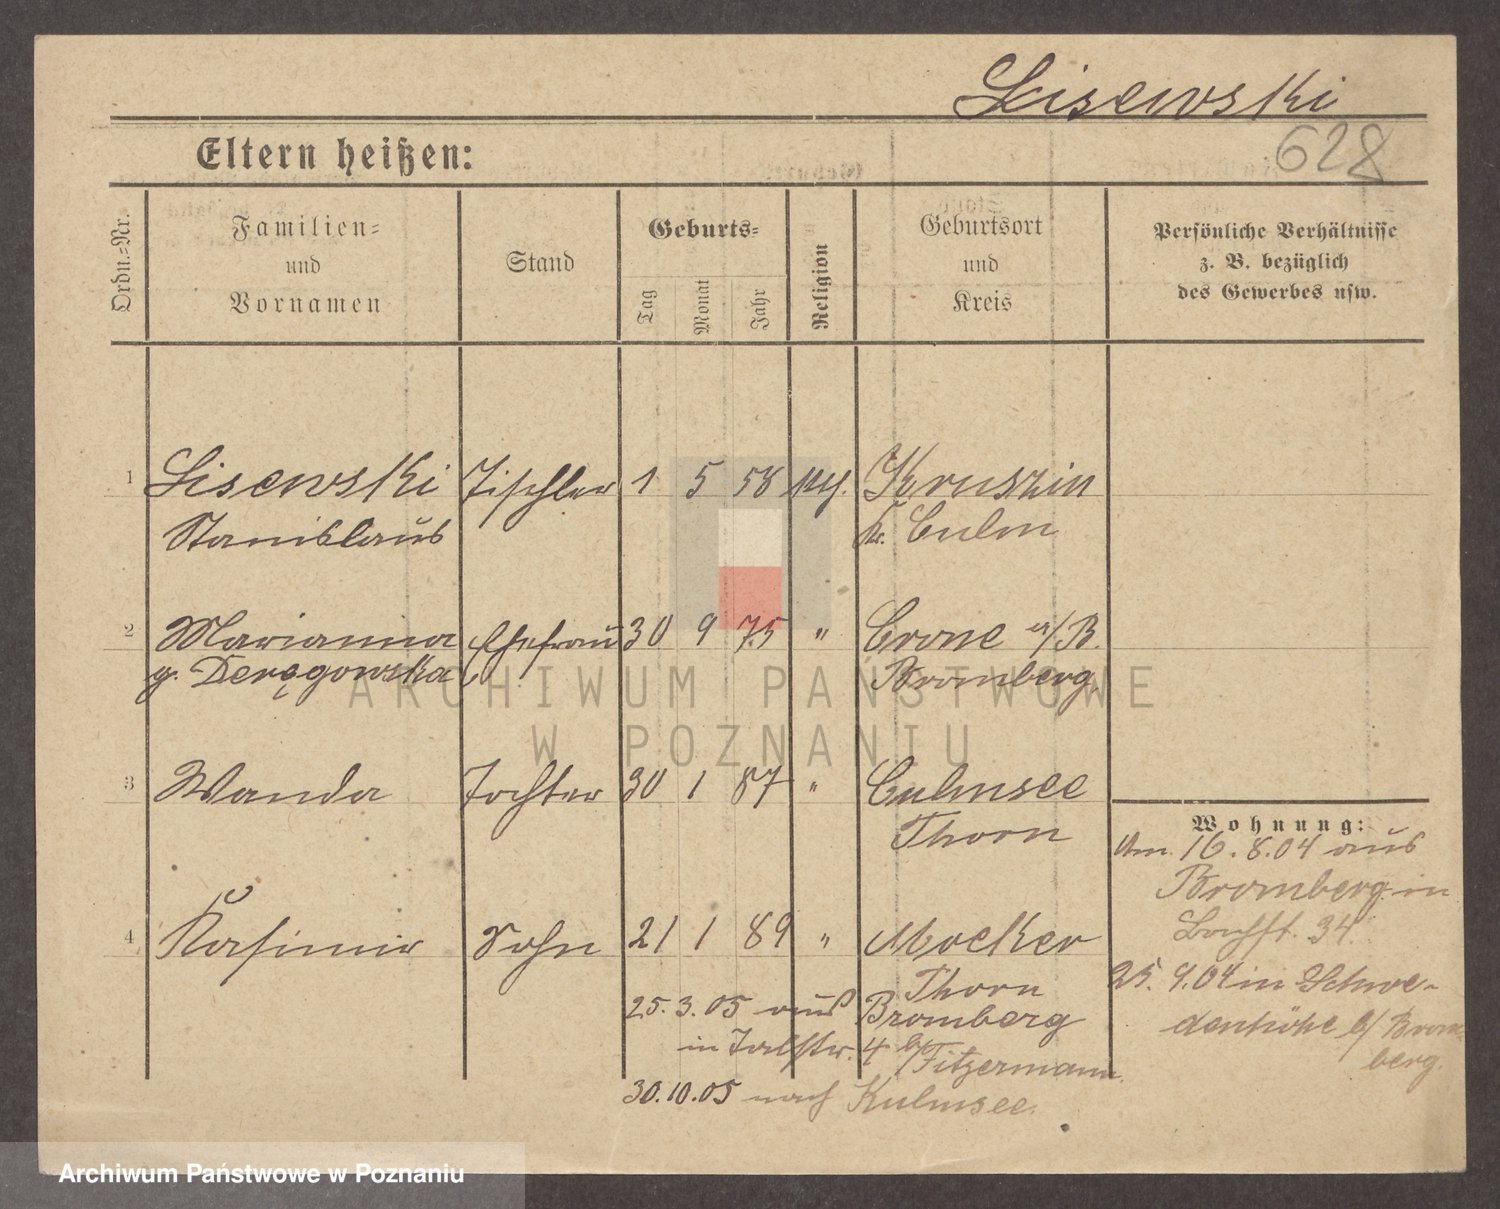 Lisewski
628
Eltern heißen:
Ordn.-Nr.
Familien-
und
Vornamen
Stand
Geburts-
Tag
Monat
Jahr
Religion
Geburtsort
und
Kreis
Persönliche Verhältnisse
z. B. bezüglich
des Gewerbes usw.
1 Lisewski Tischler 1 5 58 Kruszin
Stanislaus Kr. Culm
2 Marianna Ehefrau 30 9 75 " Crone a/B.
g. Deręgowska Bromberg
3 Wanda Tochter 30 1 87 " Culmsee
Thorn
Wohnung:
Am 16.8.04 aus
Bromberg in
34
4 Kasimir Sohn 21 1 89 " Mocker
Thorn
25.9.04 in Schwe-
denhöhe b/ Brom-
berg.
25.3.05 aus Bromberg
in 4 b/Fitzermann
30.10.05 nach Kulmsee.
ARCHIWUM PAŃSTWOWE
W POZNANIU
Archiwum Państwowe w Poznaniu